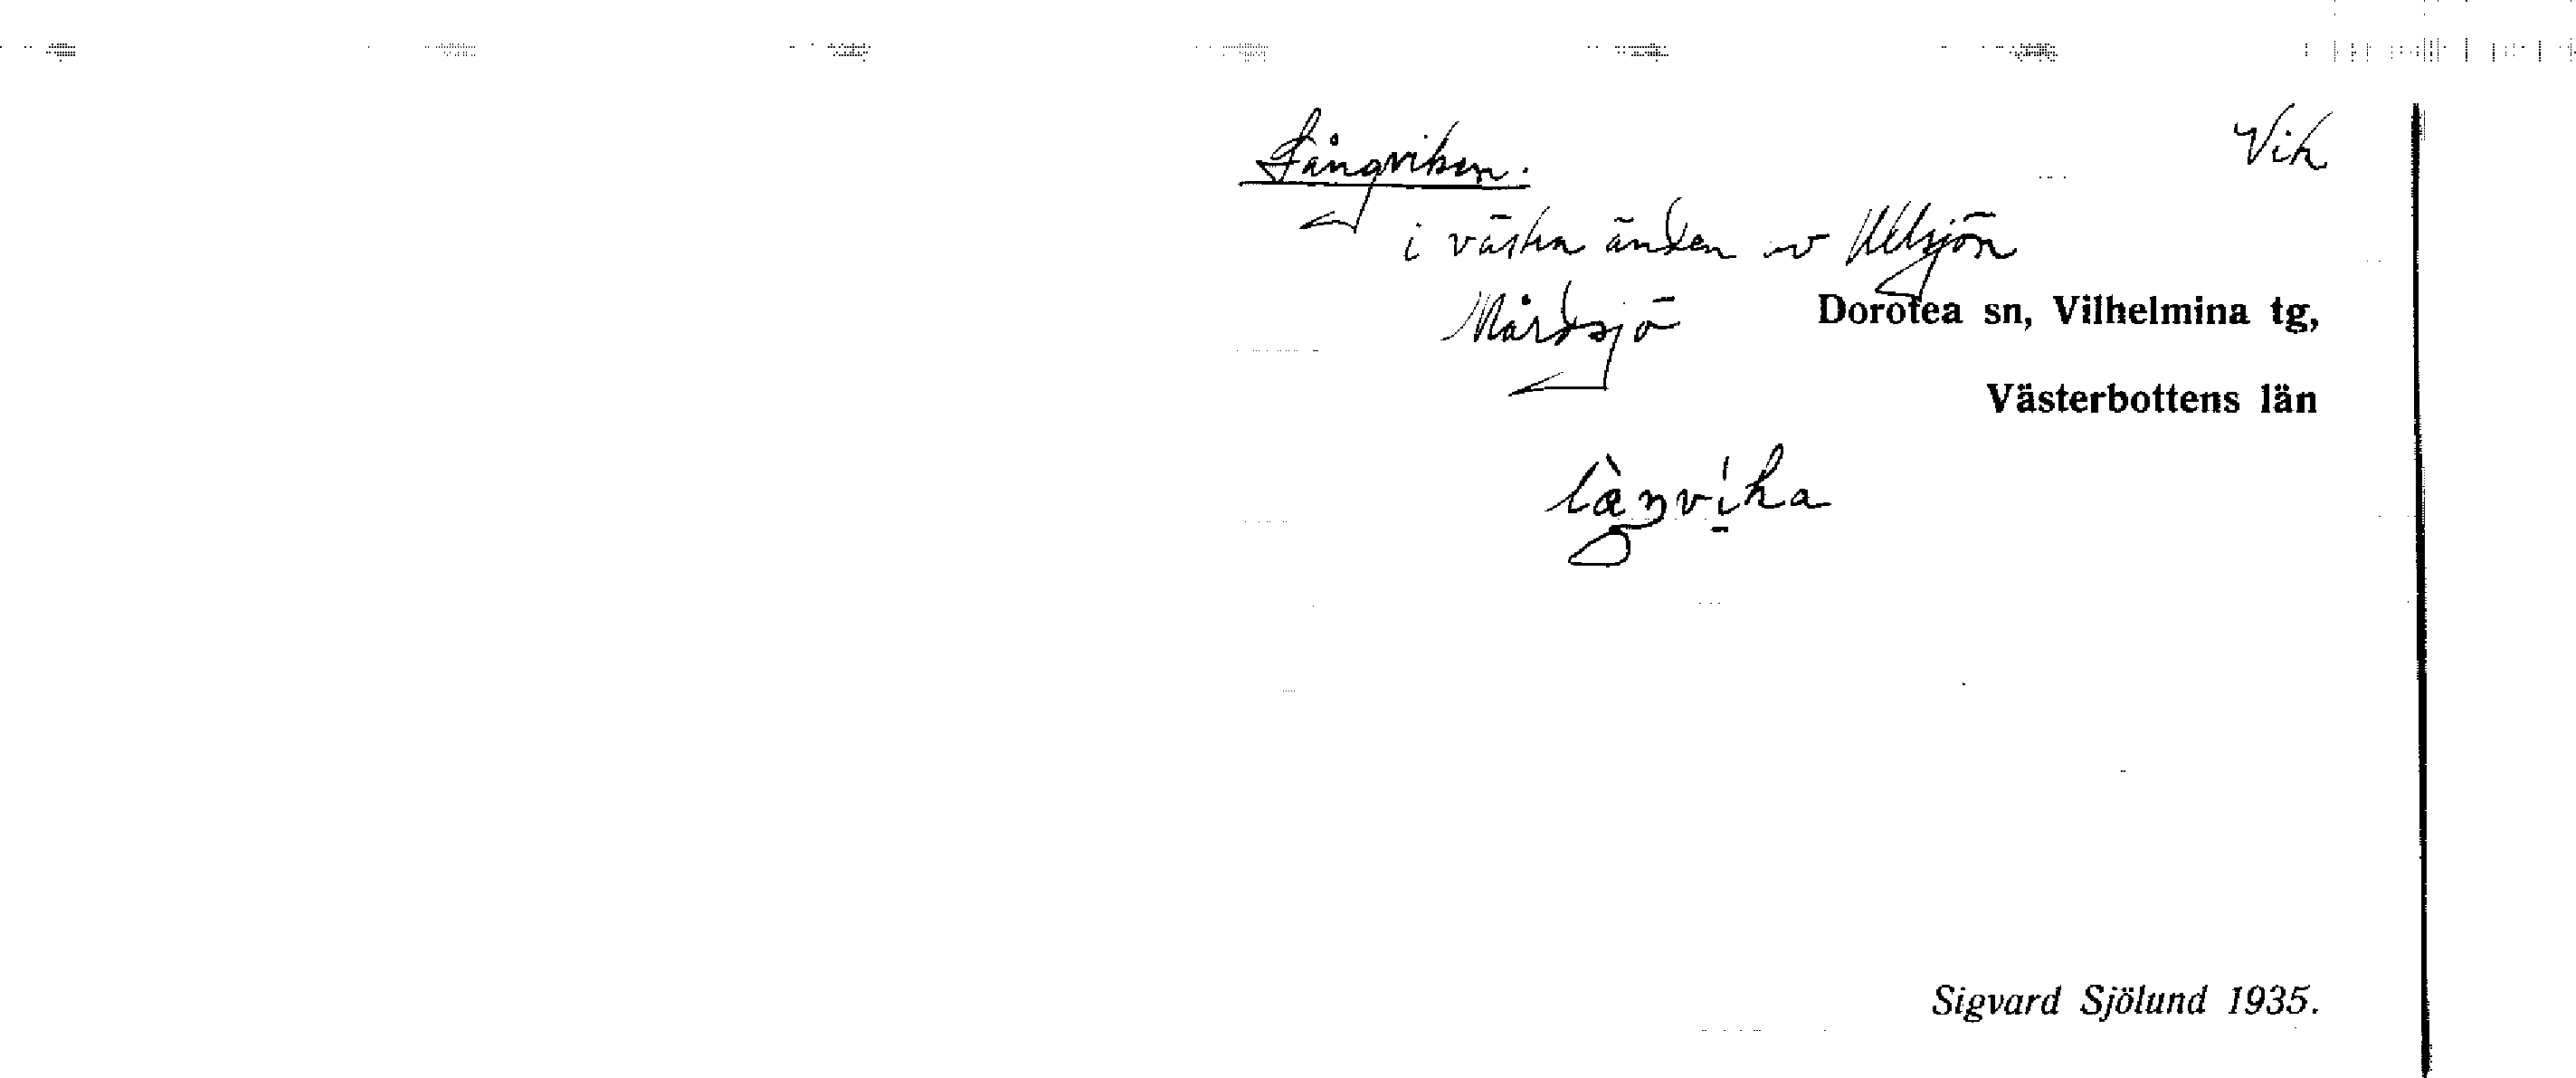 Långviken. Vik
i västra änden av Ulvsjön
Mårdsjö Dorotea sn, Vilhelmina tg,
Västerbottens län
Sigvard Sjölund 1935.